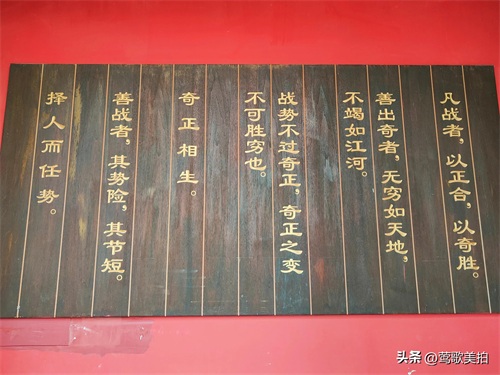 凡战者，以正合，以奇胜。
善出奇者，无穷如天地，
不竭如江河。
战势不过奇正，奇正之变
不可胜穷也。
奇正相生。
善战者，其势险，其节短。
择人而任势。
头条 @莺歌美拍